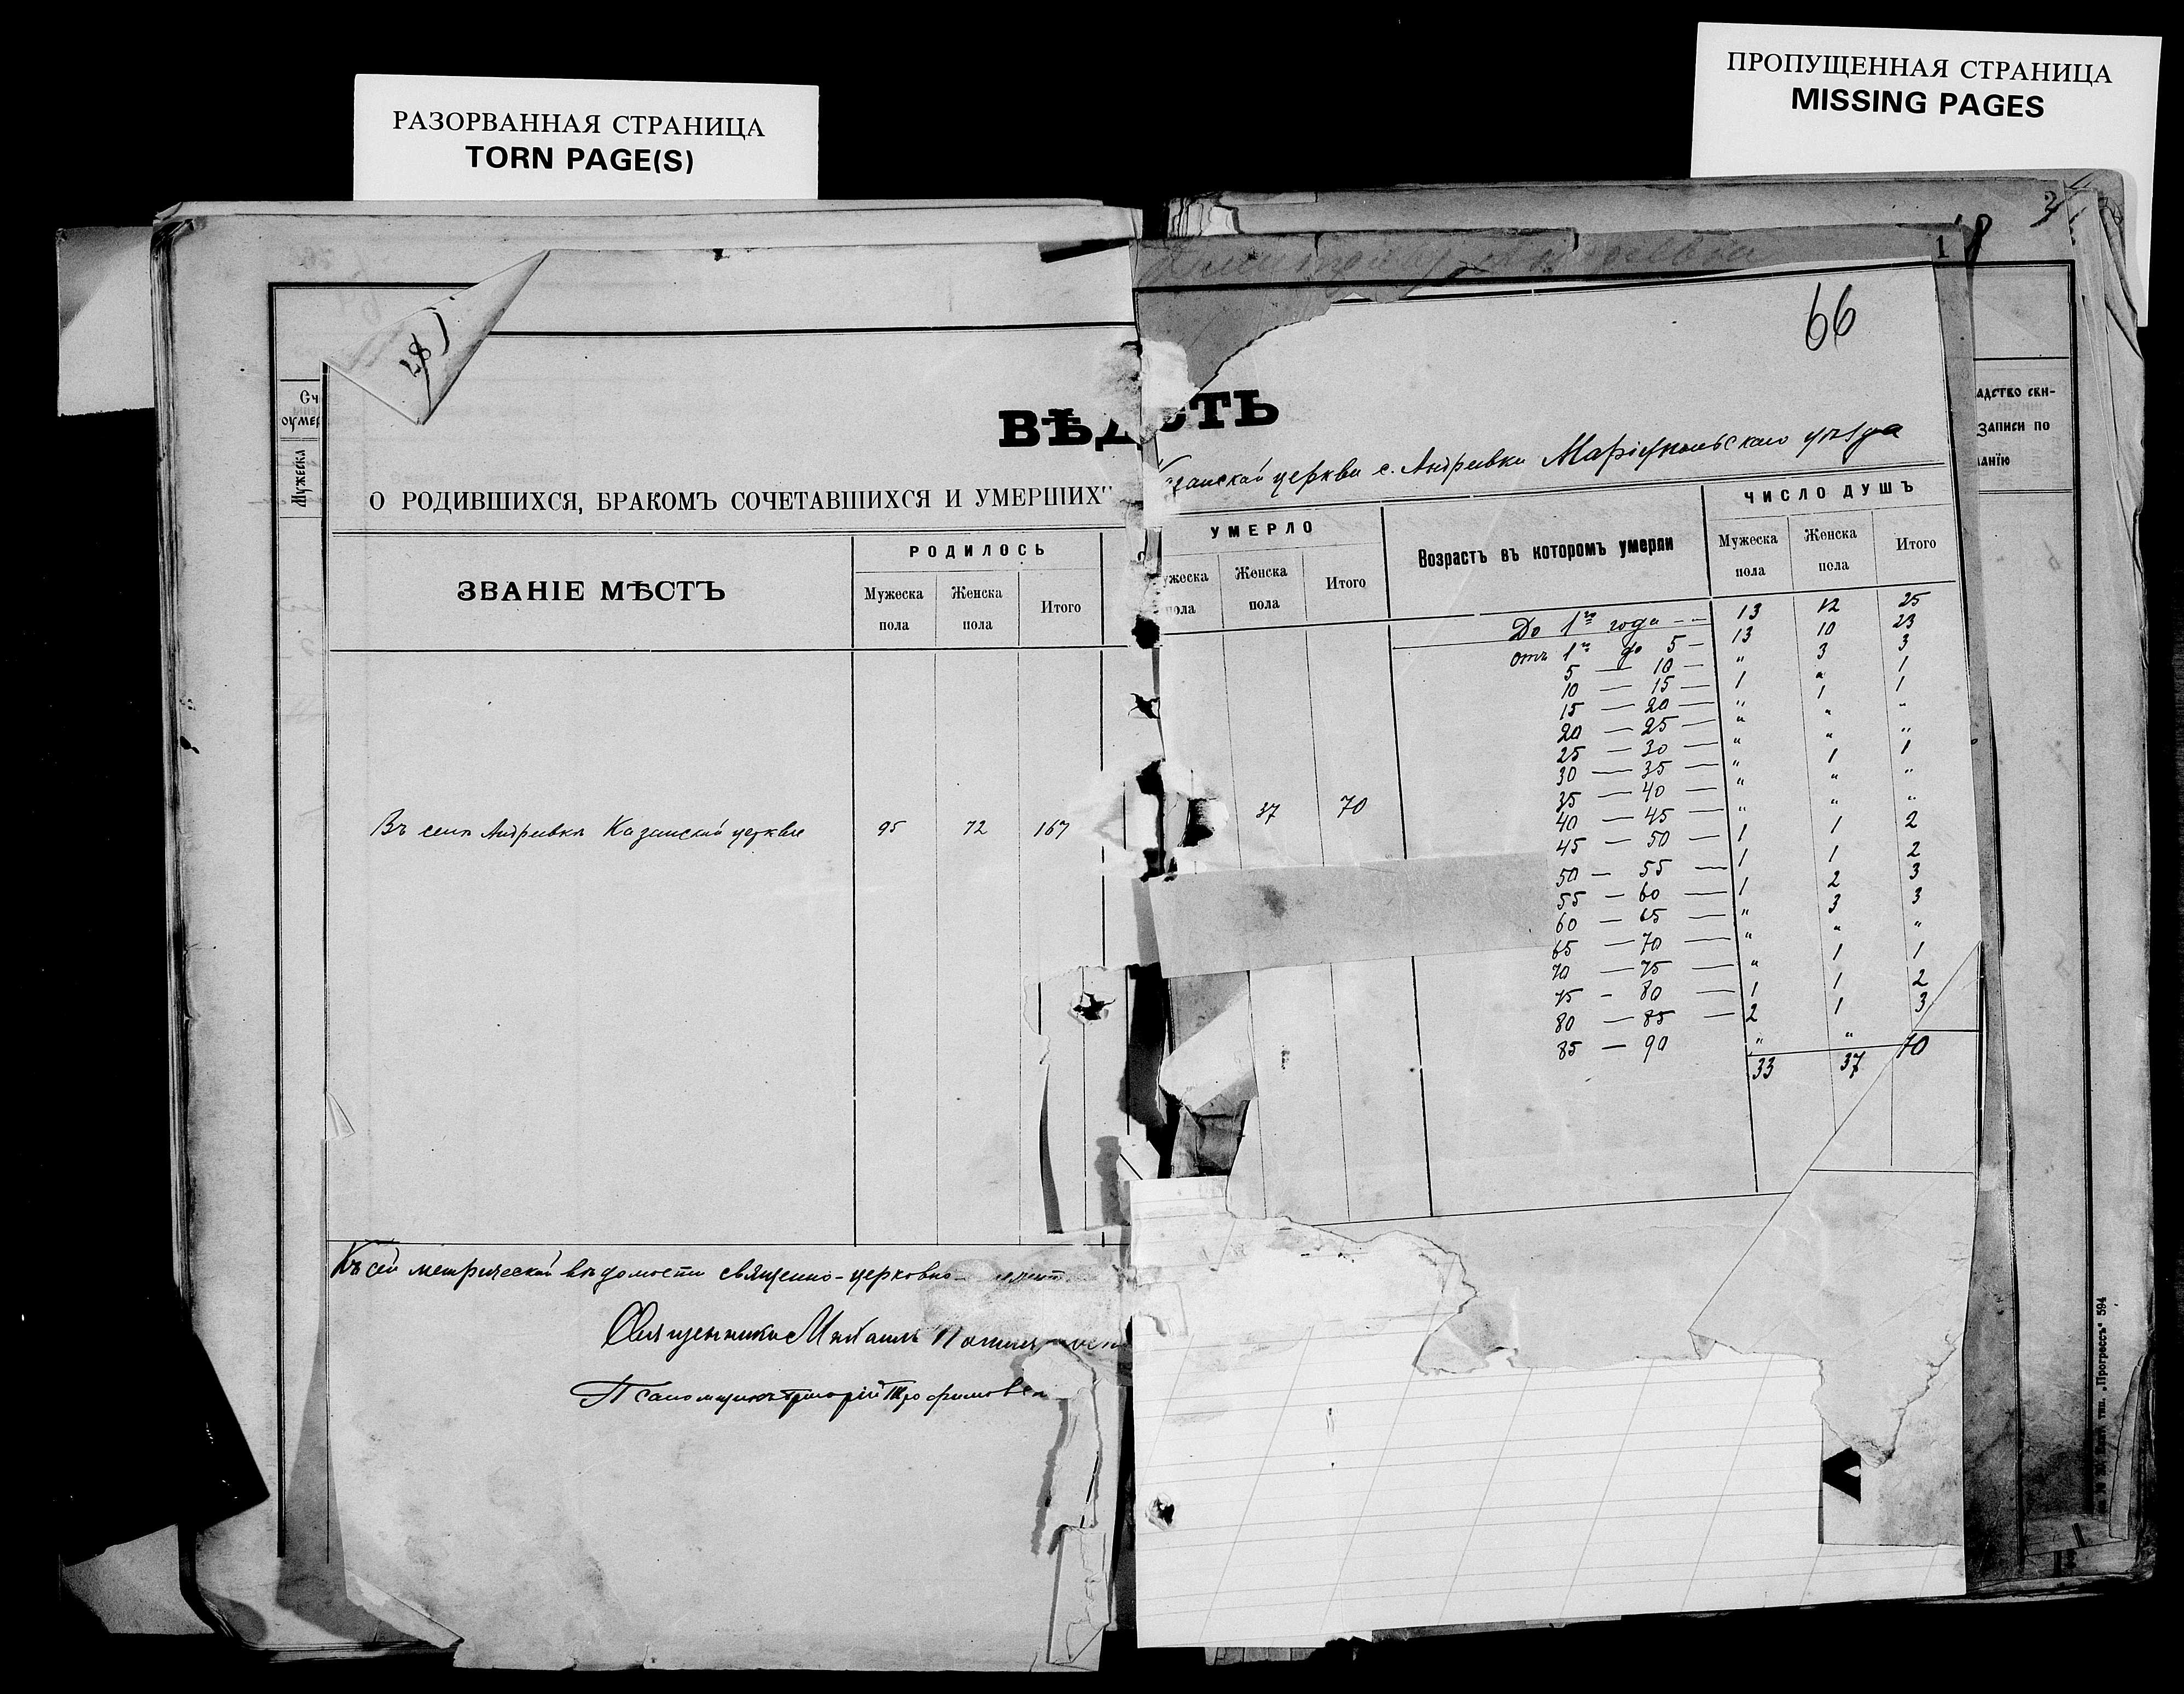 РАЗОРВАННАЯ СТРАНИЦА
TORN PAGE(S)
ПРОПУЩЕННАЯ СТРАНИЦА
MISSING PAGES
1
66
ВѢД ОТЬ
О РОДИВШИХСЯ, БРАКОМЪ СОЧЕТАВШИХСЯ И УМЕРШИХЪ
занской церкви с. Андреевки Маріупольскаго уѣзда
ЗВАНІЕ МѢСТЪ
РОДИЛОСЬ
Мужеска пола
Женска пола
Итого
УМЕРЛО
ужеска пола
Женска пола
Итого
Возрастъ въ которомъ умерли
ЧИСЛО ДУШЪ
Мужеска пола
Женска пола
Итого
Въ селѣ Андреевкѣ Казанской церкви 95 72 167 37 70
До 1го года - - 13 12 25
отъ 1го до 5 - 13 10 23
5 — 10 — " 3 3
10 — 15 — 1 " 1
15 — 20 — " 1 1
20 — 25 — " " "
25 — 30 — " " "
30 — 35 — " 1 1
35 — 40 — " " "
40 — 45 — " " "
45 — 50 — 1 1 2
50 — 55 — 1 1 2
55 — 60 — 1 2 3
60 — 65 — " 3 3
65 — 70 — " " "
70 — 75 — " 1 1
75 - 80 — 1 1 2
80 — 85 — 2 1 3
85 — 90 " "
33 37 70
Къ сей метрической вѣдомости священно-церковно-
Священникъ Михаилъ
Псаломщикъ Григорій Трофимовск
Сч
оумер
Мужеска
адство сви-
записи по
анію
тип. „Прогрессъ" 594